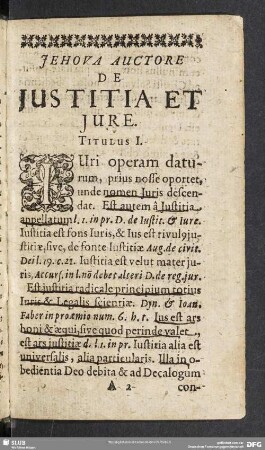 JEHOVA AUCTORE
DE
JUSTITIA ET
JURE.
TITULUS I.
IUri operam datu-
rum, prius nosse oportet,
unde nomen Juris descen-
dat. Est autem à Justitia
appellatum l. 1. in pr. D. de Iustit. & Iure.
Iustitia est fons Iuris, & Ius est rivulꝰ ju-
stitiæ, sive, de fonte Iustitiæ Aug. de civit.
Dei l. 19. c. 21. Iustitia est velut mater ju-
ris, Accurs. in l. nō debet alteri D. de reg. jur.
Est justitia radicale principium totius
Iuris & Legalis scientiæ. Dyn. & Ioan.
Faber in proœmio num. 6. h. t. Ius est ars
boni & æqui, sive quod perinde valet,
est ars justitiæ d. l. 1. in pr. Iustitia alia est
universalis, alia particularis. Illa in o-
bedientia Deo debita & ad Decalogum
A 2 con-
SLUB